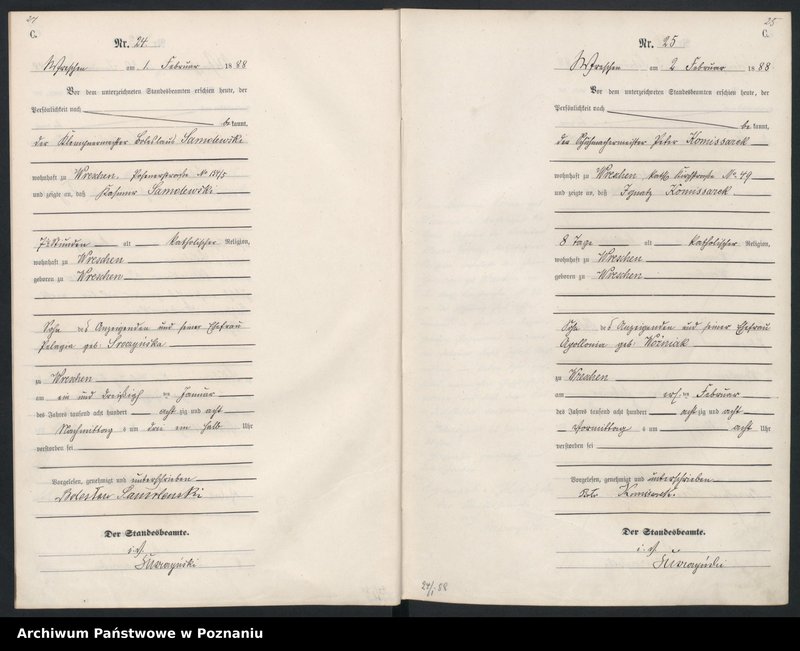 24
C.
Nr. 24
Wreschen am 1 Februar 1888
Vor dem unterzeichneten Standesbeamten erschien heute, der
Persönlichkeit nach
be kannt,
der Klempnermeister Boleslaus Samolewski
wohnhaft zu Wreschen, Posenerstraße No 154/5
und zeigte an, daß Kasimir Samolewski
7½ Stunden alt katholischer Religion,
wohnhaft zu Wreschen
geboren zu Wreschen
Sohn des Anzeigenden und seiner Ehefrau
Pelagia geb: Sroczyńska
zu Wreschen
am ein und dreißigsten Januar
des Jahres tausend acht hundert acht zig und acht
Nachmittag s um drei ein halb Uhr
verstorben sei
Vorgelesen, genehmigt und unterschrieben
Bolesław Samolewski
Der Standesbeamte.
i. V.
25
C.
Nr. 25
Wreschen am 2 Februar 1888
Vor dem unterzeichneten Standesbeamten erschien heute, der
Persönlichkeit nach
be kannt,
der Schuhmachermeister Peter Komissarek
wohnhaft zu Wreschen kath. Kirchstraße No. 49
und zeigte an, daß Ignatz Komissarek
8 Tage alt katholischer Religion,
wohnhaft zu Wreschen
geboren zu Wreschen
Sohn des Anzeigenden und seiner Ehefrau
Apollonia geb: Woźniak
zu Wreschen
am ersten Februar
des Jahres tausend acht hundert acht zig und acht
Vormittag s um acht Uhr
verstorben sei
Vorgelesen, genehmigt und unterschrieben
Komissarek
Der Standesbeamte.
i. V.
Archiwum Państwowe w Poznaniu